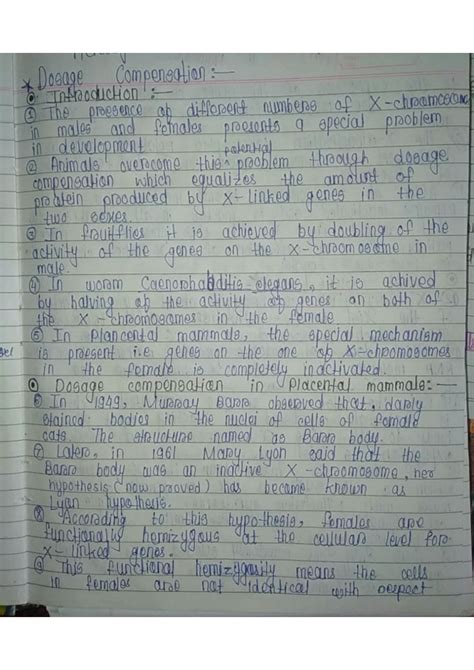 * Dosage Compensation:—
Introduction:—
① The presence of different numbers of X-chromosome
in males and females presents a special problem
in development
② Animals overcome this potential problem through dosage
compensation which equalizes the amount of
protein produced by X-linked genes in the
two sexes.
③ In fruitflies it is achieved by doubling of the
activity of the genes on the X-chromosome in
male.
④ In worm Caenorhabditis elegans, it is achived
by halving of the activity of genes on both of
the X-chromosomes in the female
⑤ In plancental mammals, the special mechanism
is present i.e genes on the one of X-chromosomes
in the female is completely inactivated.
Dosage compensation in Placental mammals:—
In 1949, Murray Barr observed that, darly
stained bodies in the nuclei of cells of female
cats. The structure named as Barr body.
⑦ Later, in 1961 Mary Lyon said that the
Barr body was an inactive X-chromosome, her
hypothesis (now proved) has became known as
Lyon hypothesis.
⑧ According to this hypothesis, females are
functionally hemizygous at the cellular level for
X-linked genes.
⑨ This functional hemizygosity means the cells
in females are not identical with respect